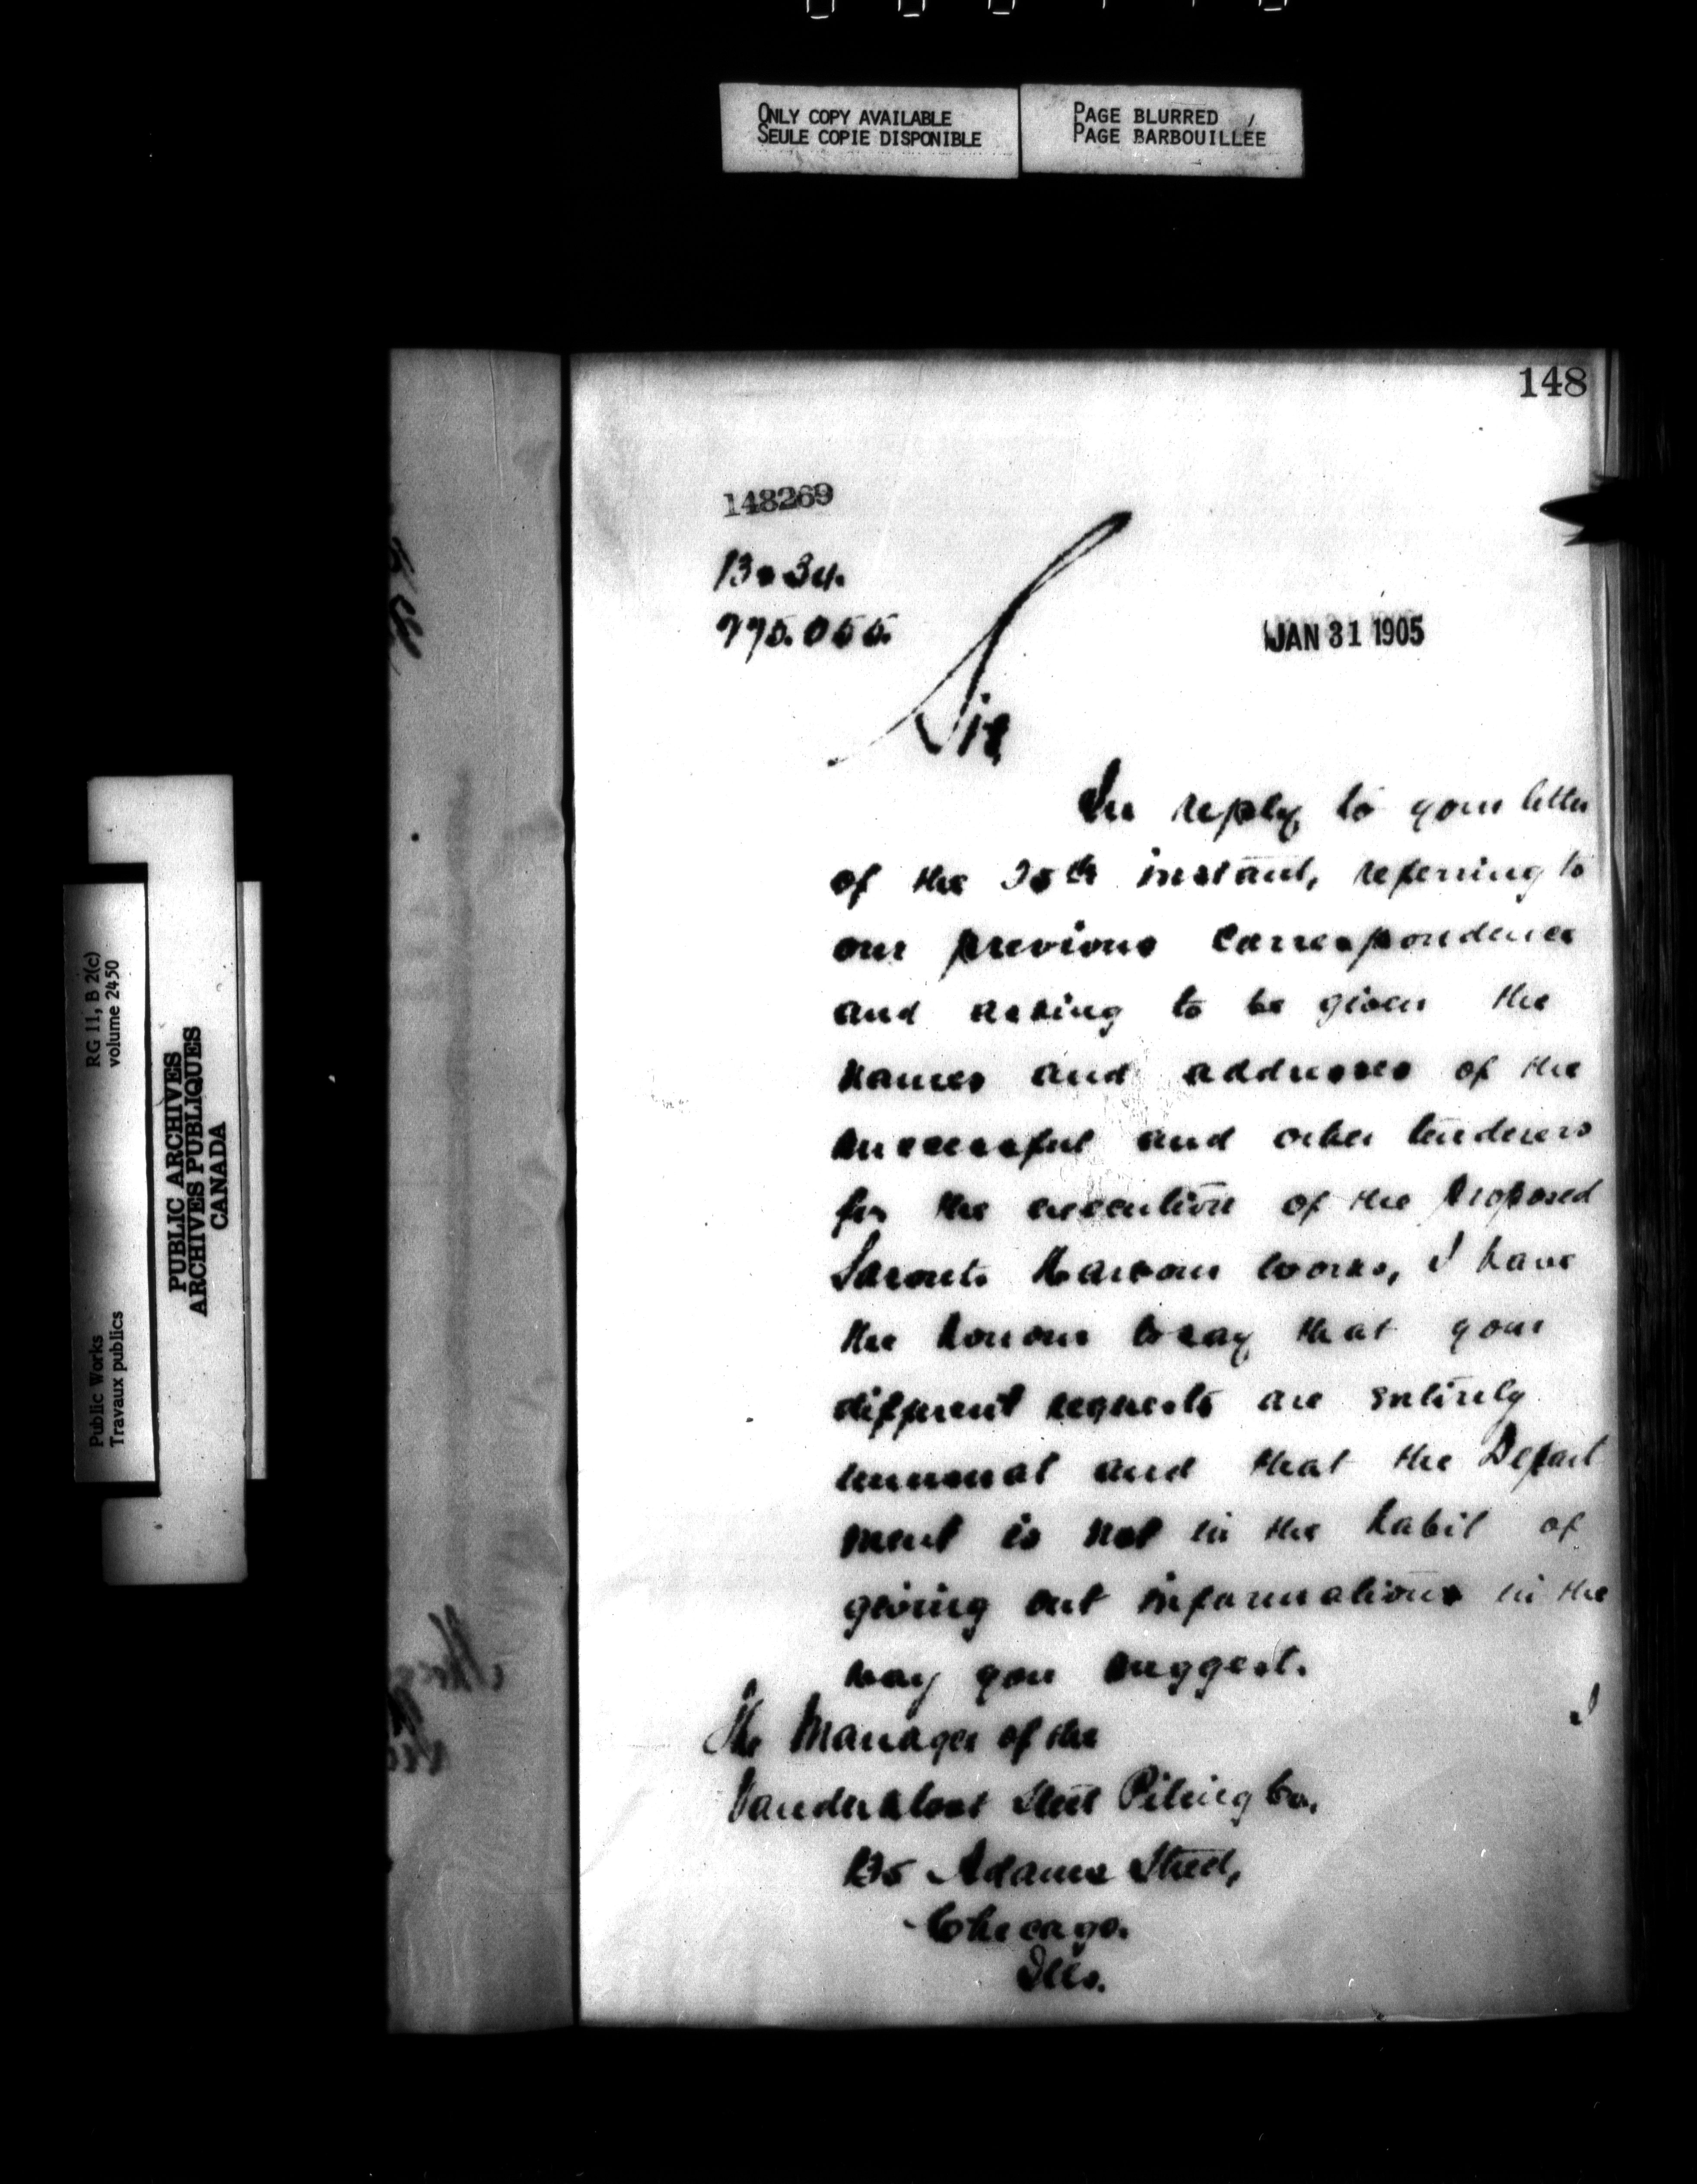 ONLY COPY AVAILABLE
SEULE COPIE DISPONIBLE
PAGE BLURRED
PAGE BARBOUILLÉE
148
148269
13 · 34.
775.055.
JAN 31 1905
Sir
In reply to your letter
of the 25th instant, referring to
our previous correspondence
and asking to be given the
names and addresses of the
successful and other tenderers
for the execution of the proposed
Harbour works, I have
the honour to say that your
different requests are entirely
unusual and that the Depart
ment is not in the habit of
giving out informations in the
way you suggest.
I
The Manager of the
Vanderkloot Steel Piling Co.,
135 Adams Street,
Chicago.
Ills.
RG 11, B 2(c)
volume 2450
Public Works
Travaux publics
PUBLIC ARCHIVES
ARCHIVES PUBLIQUES
CANADA